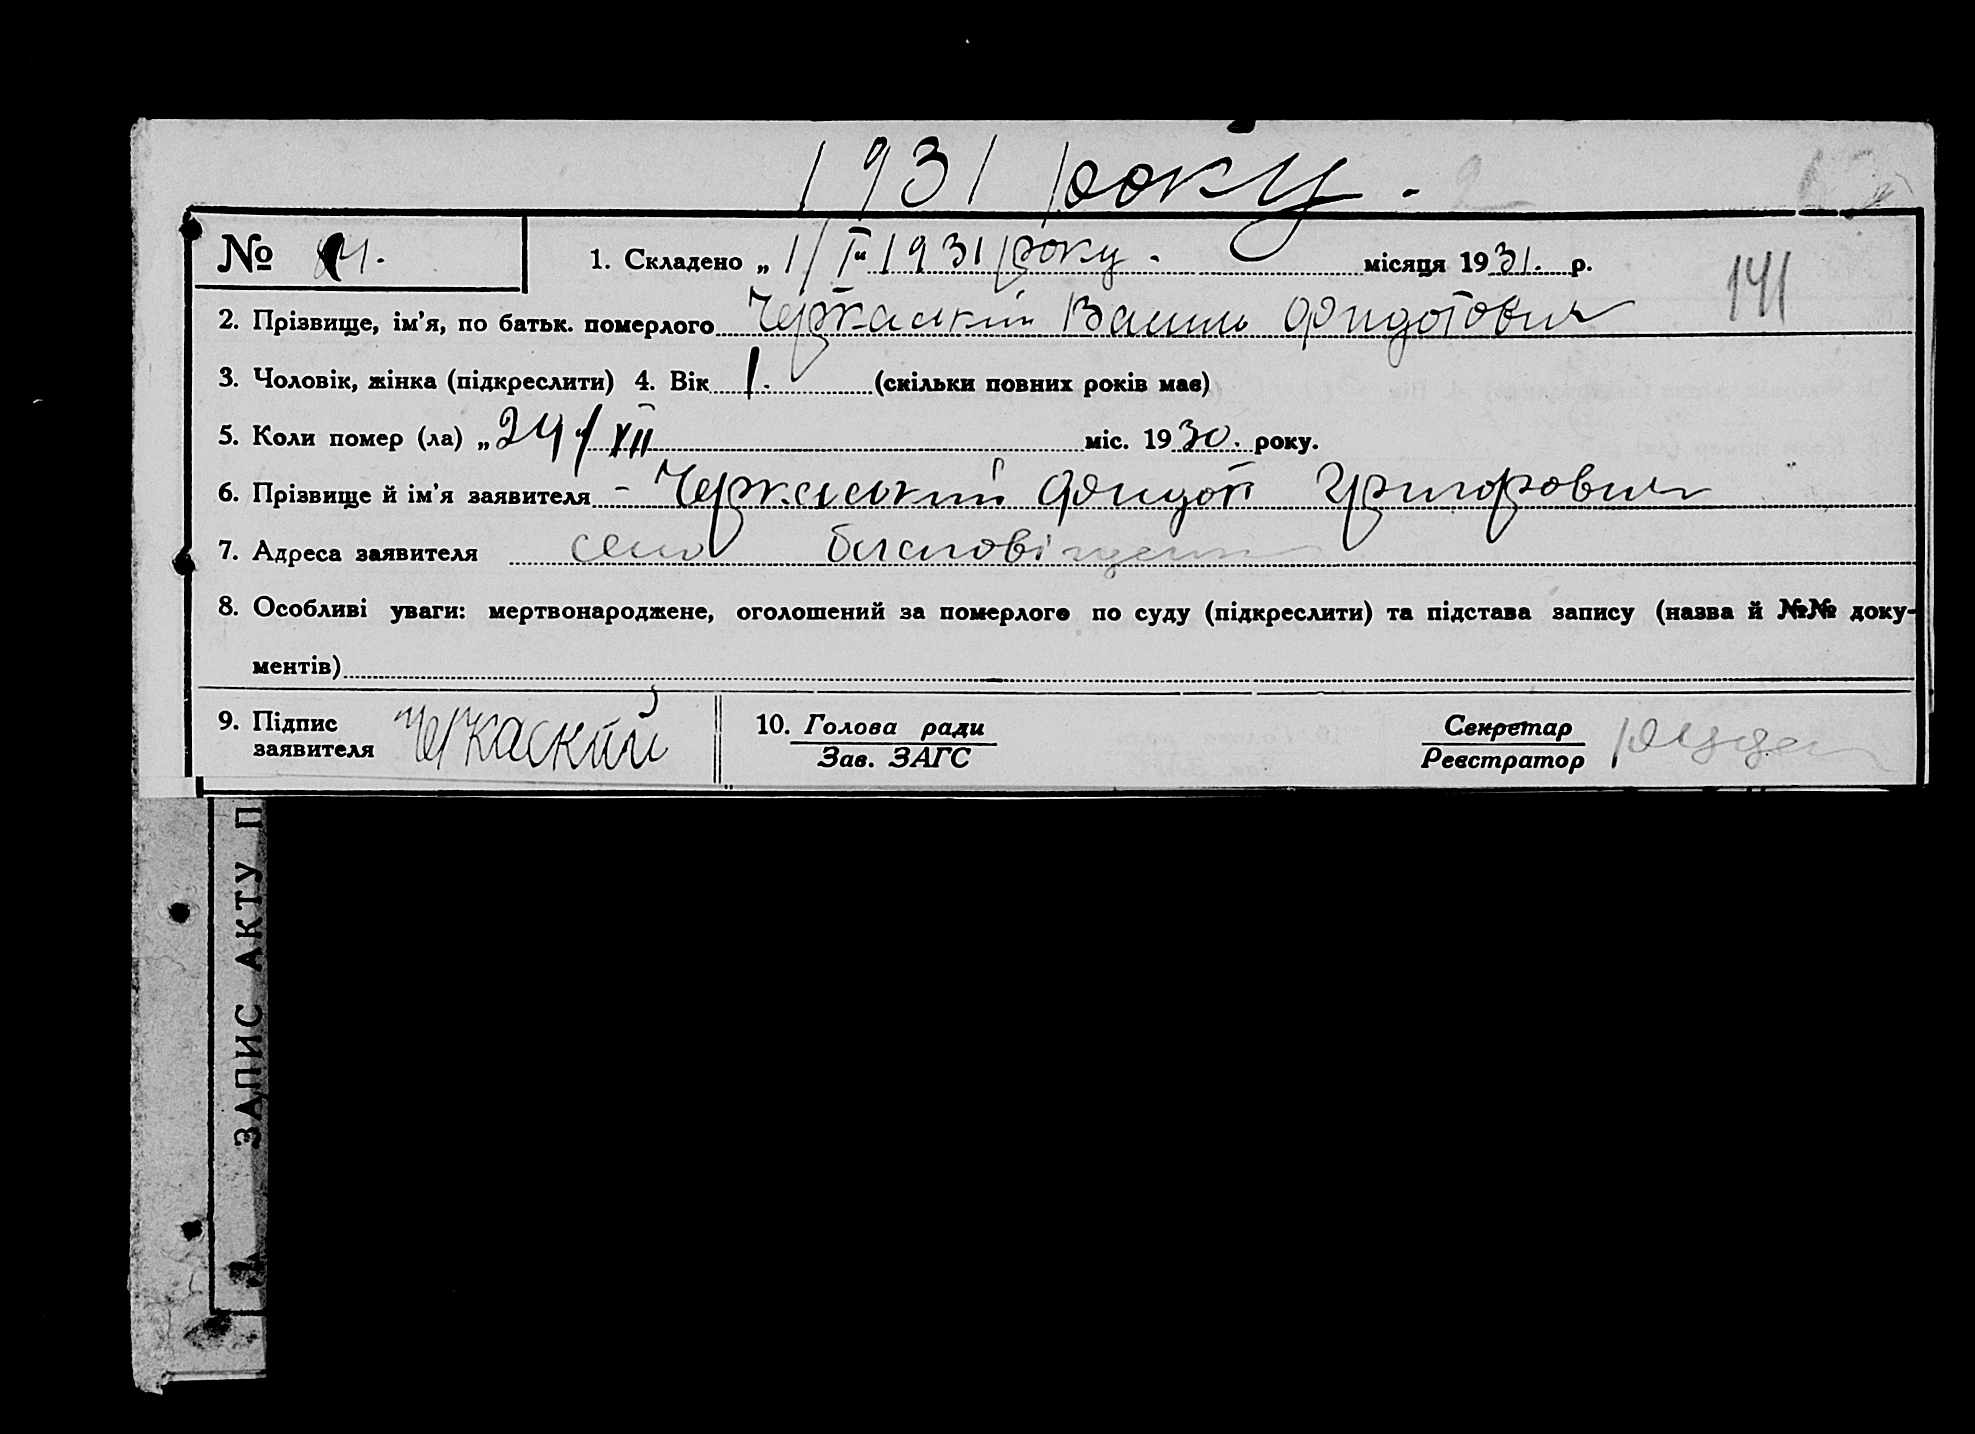 1931 року.
№
1. Складено „1/I“ 1931 року. місяця 1931. р.
141
2. Прізвище, ім'я, по батьк. померлого Черкаський Василь Фидотович
3. Чоловік, жінка (підкреслити) 4. Вік 1. (скільки повних років мав)
5. Коли помер (ла) „24/XII міс. 1930. року.
6. Прізвище й ім'я заявителя - Черкаський Фидот Григорович
7. Адреса заявителя село
8. Особливі уваги: мертвонароджене, оголошений за померлого по суду (підкреслити) та підстава запису (назва й №№ доку-
ментів)
9. Підпис заявителя Черкаский
10. Голова ради
Зав. ЗАГС
Секретар
Реєстратор
ЗАПИС АКТУ П